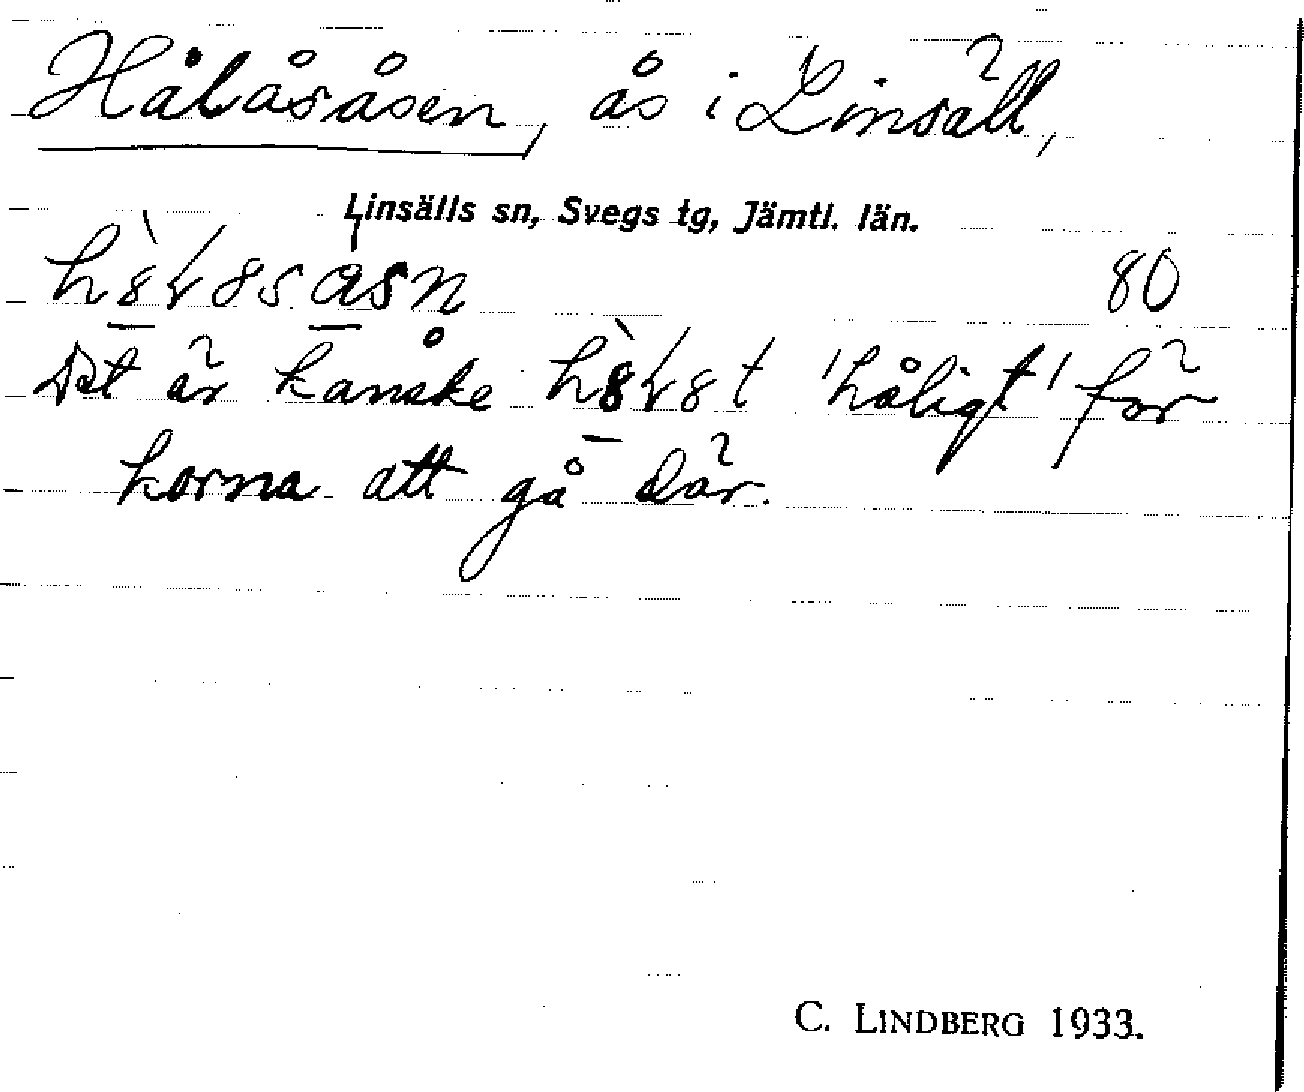 Hålåsåsen, ås i Linsäll,
Linsälls sn, Svegs tg, Jämtl. län.
80
Det är kanske 'håligt' för
korna att gå där.
C. LINDBERG 1933.